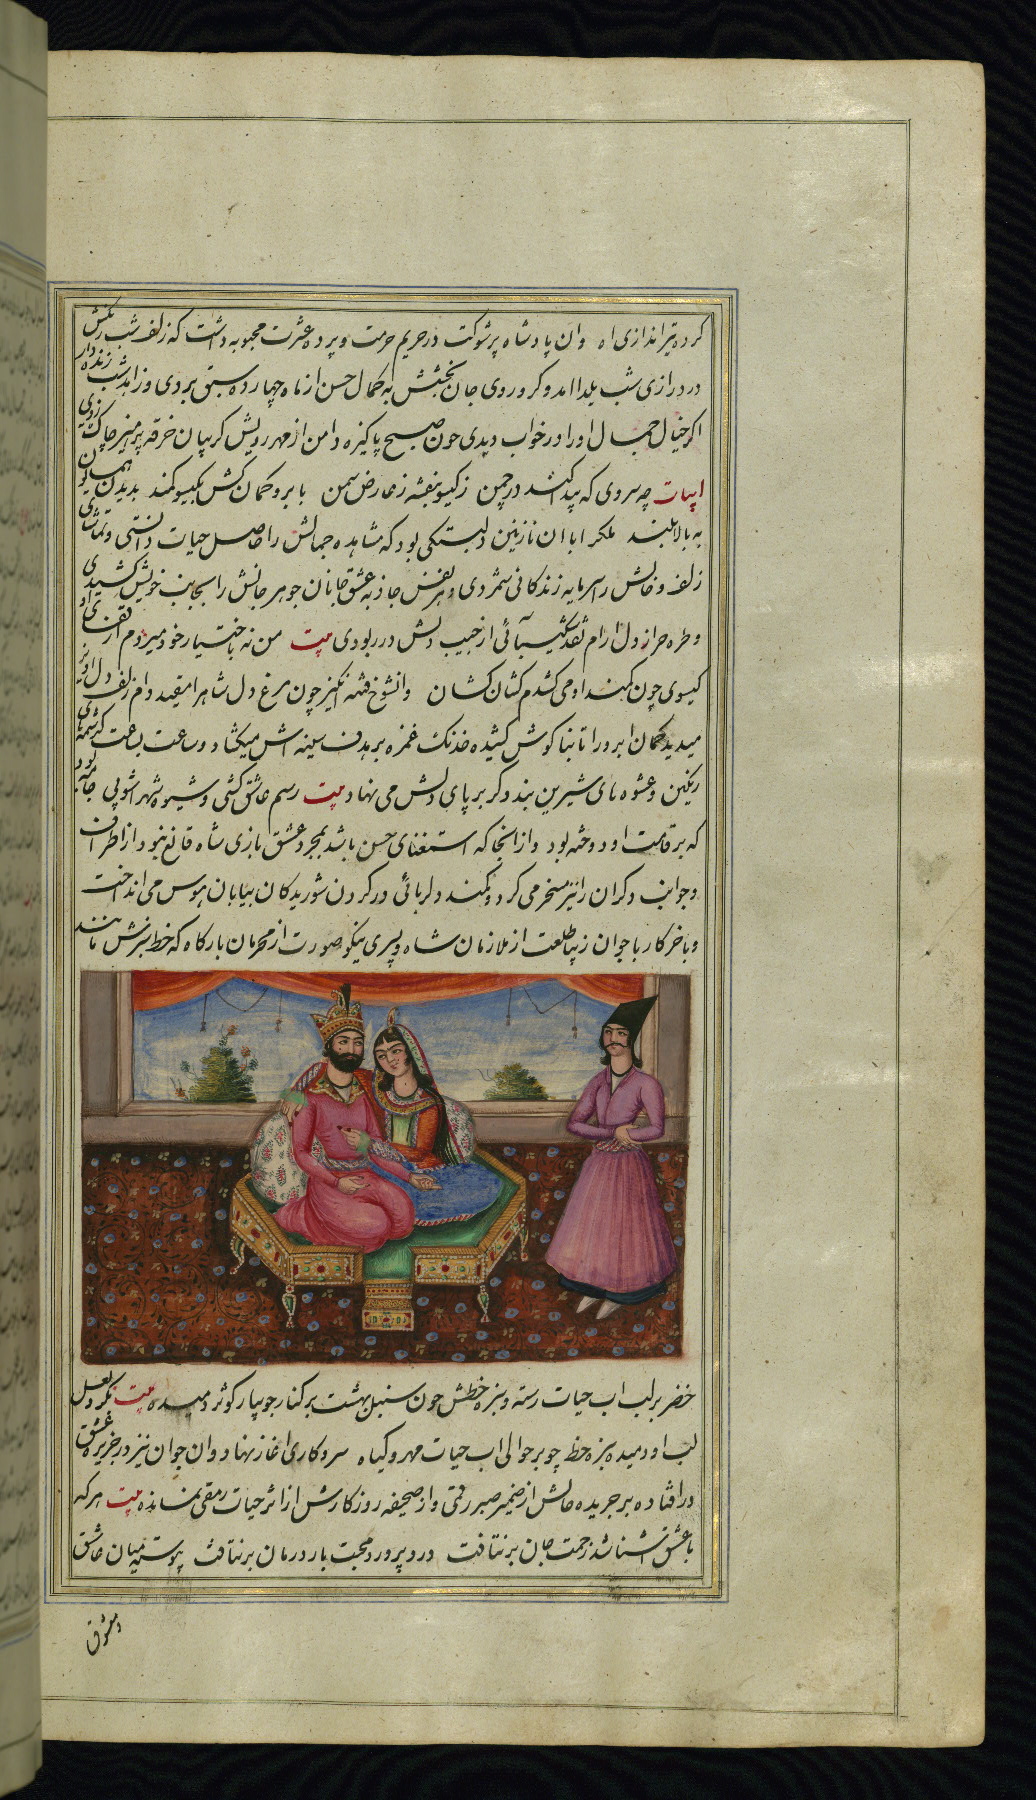 کرده تیراندازی اه وان پادشاه پرشوکت در حریم حرمت و پرده عشرت محبوبه داشت که زلف شب رنکش
در درازی شب یلدا امد و کرو روی جان بخشش به کمال حسن از ماه چهارده سبق بردی و زاهد شب زنده دار
اکر خیال جمال اورا در خواب دیدی چون صبح پاکیزه دامن از مهر رویش کریبان خرقه پرهیز چاک زدی
ابیات چه سروی که پیدا کند در چمن ز کیسو بنفشه ز عارض سمن بابرو کمان کش بکیسو کمند بدیدن همایون
به بالا بلند ملکرا با ان نازنین دلبستکی بود که مشاهده جمالش را حاصل حیات دانستی و تماشای
زلف و خالش را سرمایه زندکانی شمردی و هر نفس جاذبه عشق جانان جوهر جانش را بجانب خویش کشیدی
و طره طرار دل ارام نقد شکیبائی از جیب دلش در ربودی بیت من نه باختیار خود میروم از قفای او
کیسوی چون کمند او می کشدم کشان کشان وانشوخ فتنه انکیز چون مرغ دل شاهرا مقید دام زلف دل اویز
میدید کمان ابرو را تا بناکوش کشیده خدنک غمزه بر هدف سینه اش میکشاد و ساعت بساعت کرشمهای
رنکین و عشوه های شیرین بند دکر بر پای دلش می نهاد بیت رسم عاشق کشی و شیوه شهر اشوبی جامه بود
که بر قامت او دوخته بود و از انجا که استغنای حسن باشد بمجرد عشق بازی شاه قانع نبود از اطراف
و جوانب دکران را نیز مسخر می کرد و کمند دلربائی در کردن شوریدکان بیابان هوس می انداخت
و باخر کار با جوان زیبا طلعت از ملازمان شاه و پسری نیکو صورت از محرمان بارکاه که خط سبزش مانند
خضر بر لب اب حیات رسته و سبزه خطش چون سنبل بهشت بر کنار جویبار کوثر دمیده بیت بکرد لعل
لب او دمیده سبزه خط چو بر حوالی اب حیات مهر کیاه سر و کاری اغاز نهاد و ان جوان نیز در جزیره عشق
در افتاده بر جریده حالش از ضمیر صبر رقمی و از صحیفه روزکارش از اثر حیات رمقی نمانده بیت هر که
با عشق اشنا شد زحمت جان بر نتافت درد پرورد محبت بار درمان بر نتافت پیوسته میان عاشق
و معشوق